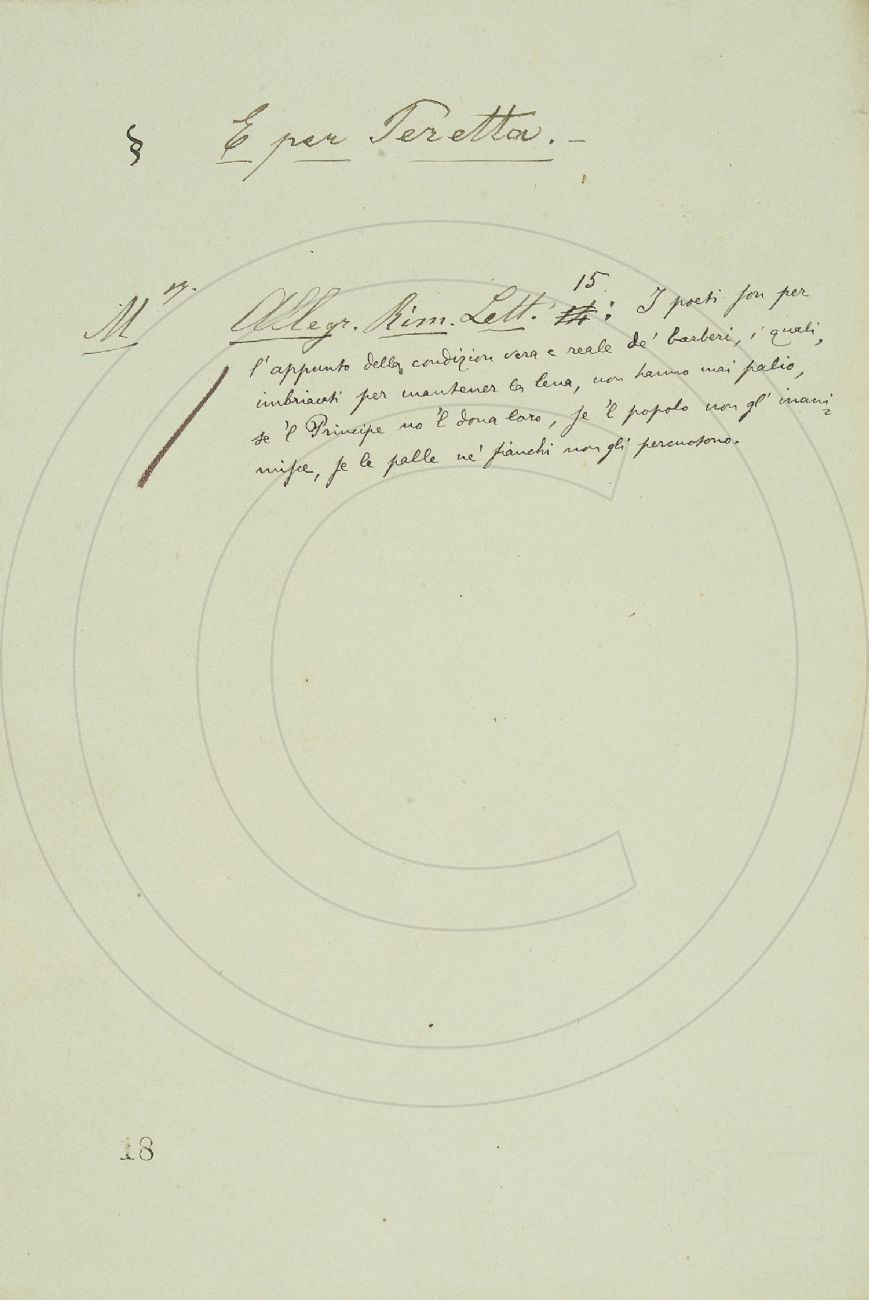 § E per Teretta. –
M m. Allegr. Rim. Lett. 15 : I poeti son per
l'appunto della condizion vera e reale de' barberi, i quali,
imbriacati per mantener la lena, non hanno mai palio,
se 'l Principe no 'l dona loro, se 'l popolo non gl' inani-
misce, se le palle ne' fianchi non gli percuotono.
18